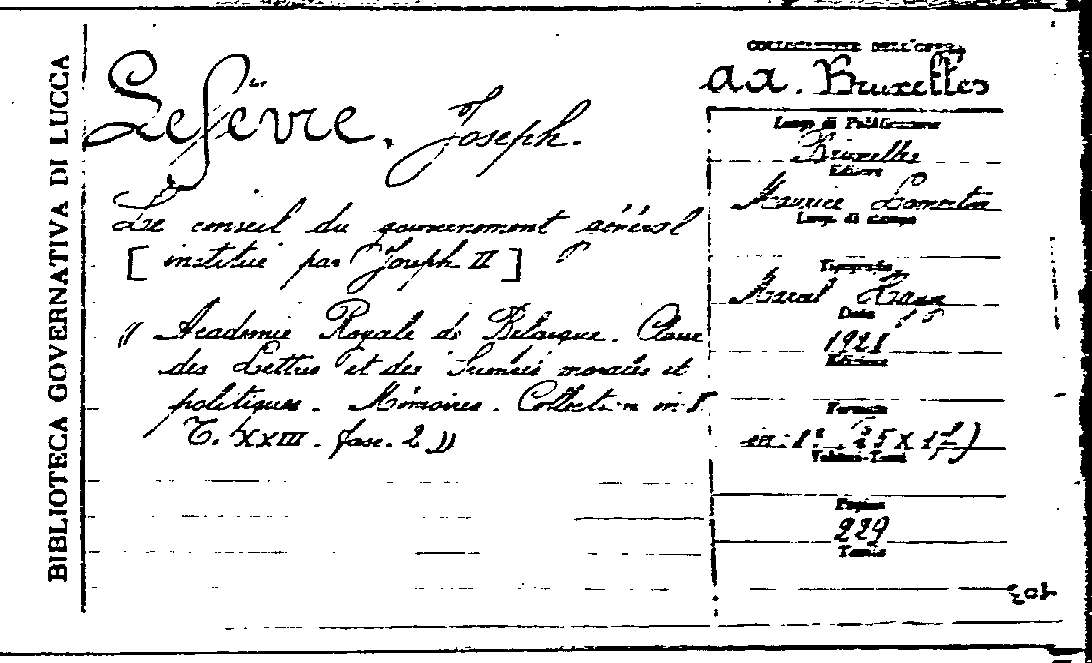 BIBLIOTECA GOVERNATIVA DI LUCCA
Lefèvre. Joseph.
Le conseil du gouvernement général
[institué par Joseph II]
"Academie Royale de Belgique. Classe
des Lettres et des Sciences morales et
politiques. Mémoires. Collection in-8°
T. XXIII. fasc. 2"
COLLOCAZIONE DELL'OPERA
aa. Bruxelles
Luogo di Pubblicazione
Bruxelles
Editore
Maurice Lamertin
Luogo di stampa
Tipografia
Marcel Hayez
Data
1928
Edizione
Formato
Volumi-Tomi
Pagine
229
Tavole